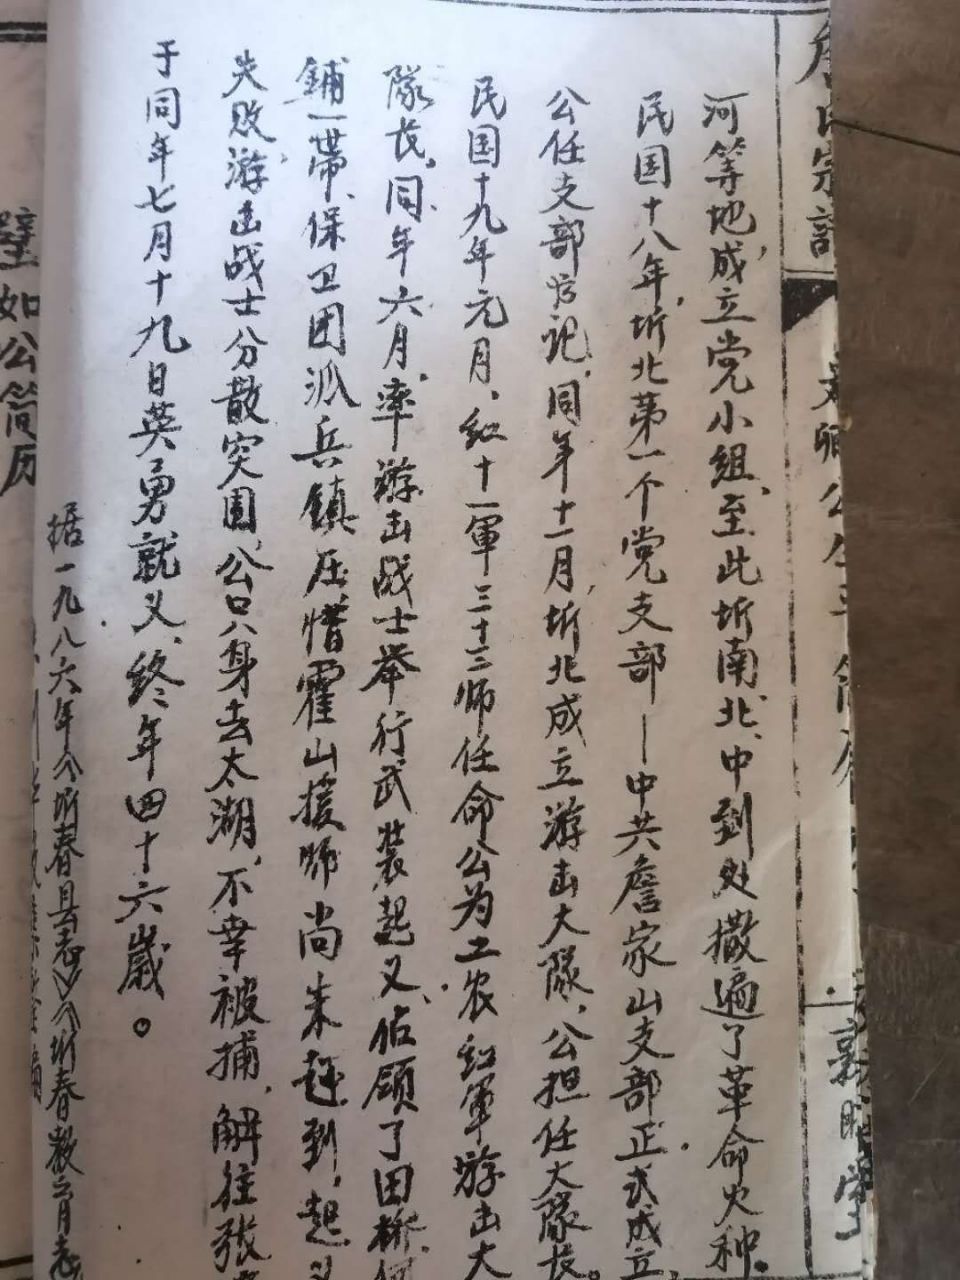 宗譜
公
河等地，成立党小组、至此圻南、北、中到处撒遍了革命火种。
民国十八年，圻北第一个党支部—中共詹家山支部正式成立，
公任支部书记，同年十一月，圻北成立游击大队，公担任大队长。
民国十九年元月，红十一軍三十二师任命公为工农红軍游击大
隊长，同年六月，率游击战士举行武装起义，佔领了田
鋪一带、保卫团派兵鎮压，惜霍山援师尚未赶到，起义
失败，游击战士分散突围，公只身去太湖，不幸被捕，解往张
于同年七月十九日英勇就义，终年四十六歲。
据一九八六年《圻春县志》《圻春教育志
璧如公简历